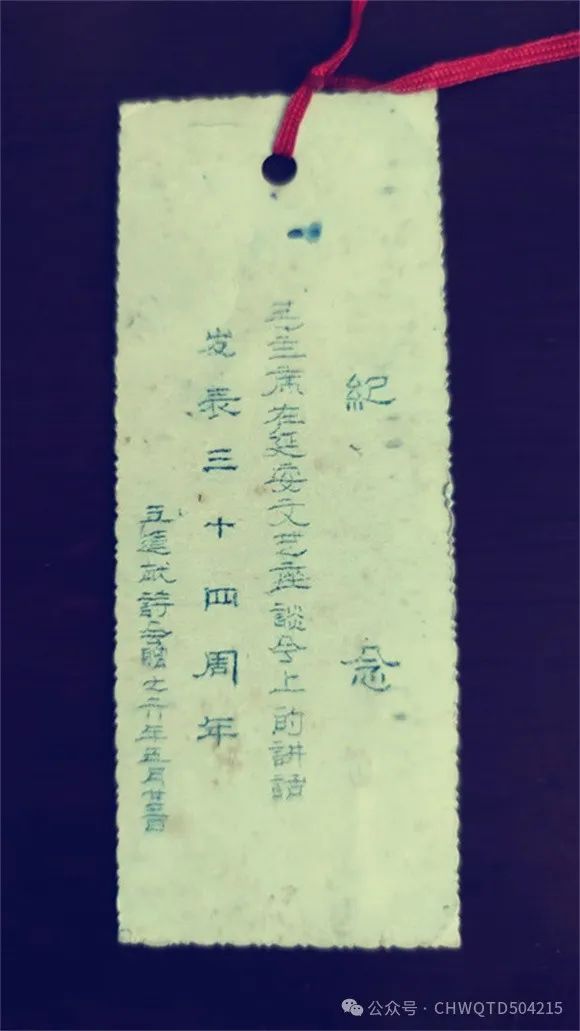 紀念
毛主席在延安文艺座談会上的讲話
发表三十四周年
五通 詩会贈 七六年五月廿三日
公众号 · CHWQTD504215